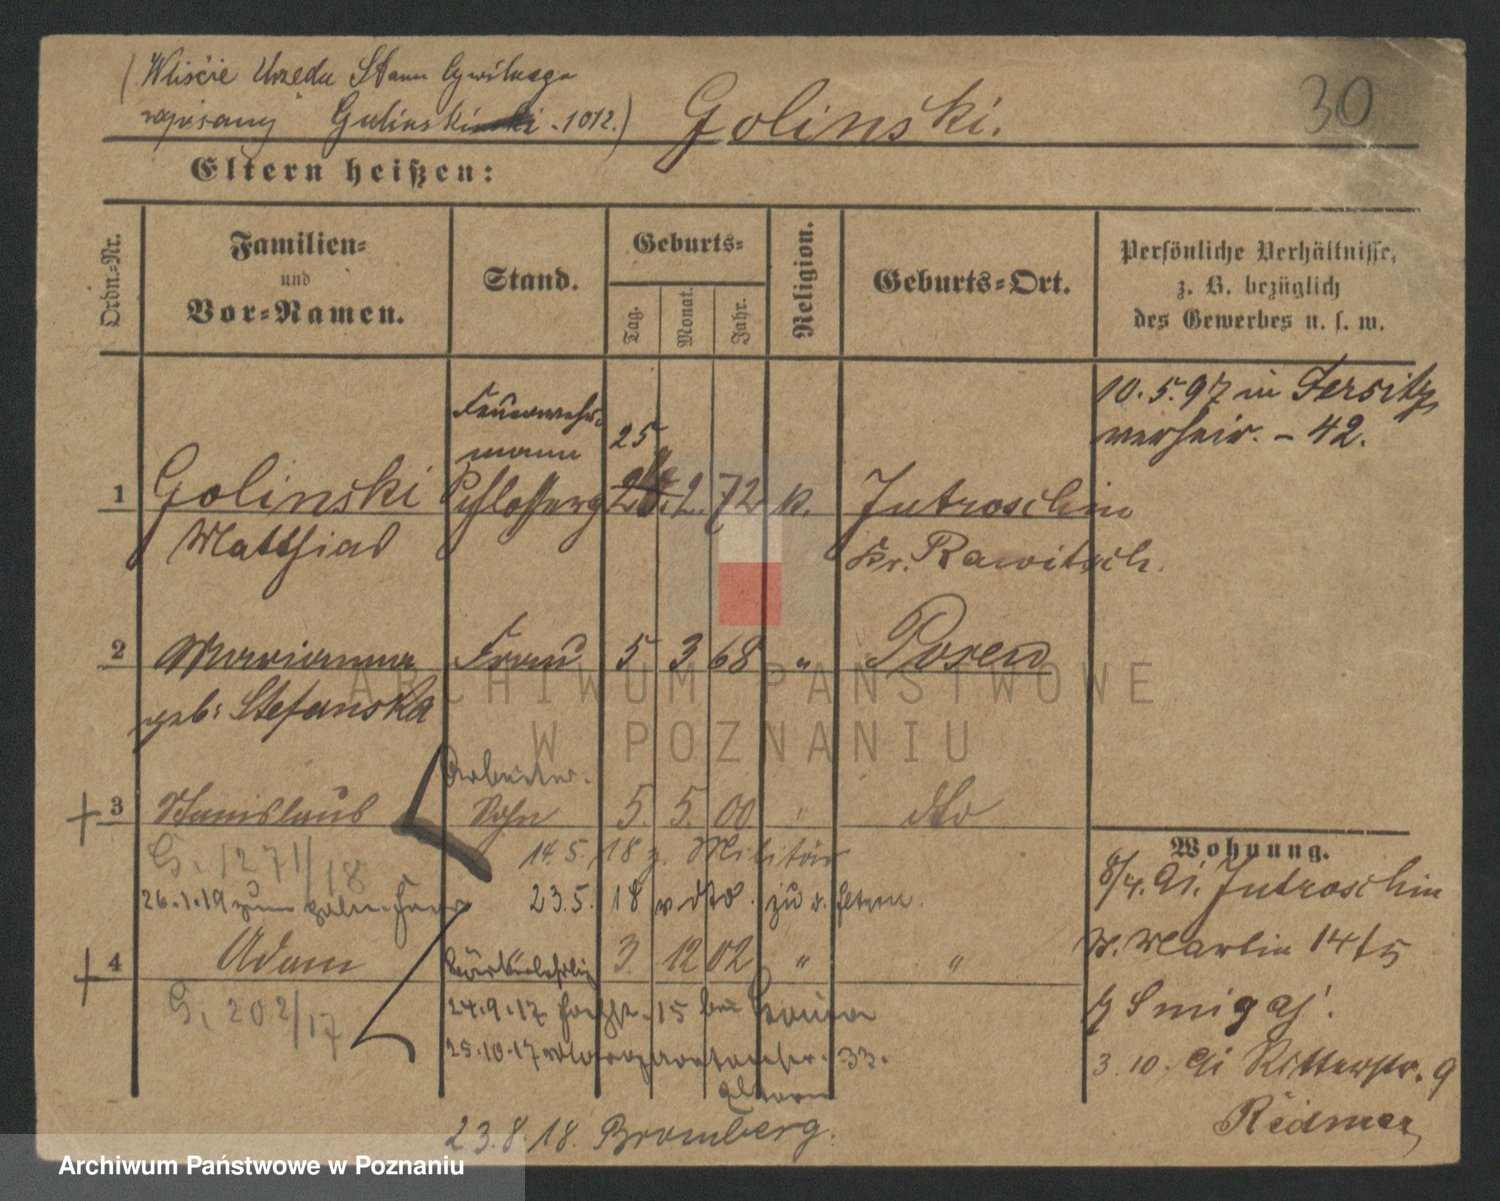 (W liście Urzędu Stanu Cywilnego
zapisany Gulinski - 1012.)
Golinski.
30
Eltern heißen:
Ordn.-Nr.
Familien-
und
Vor-Namen.
Stand.
Geburts-
Tag.
Monat.
Jahr.
Religion.
Geburts-Ort.
Persönliche Verhältnisse,
z. B. bezüglich
des Gewerbes u. s. w.
10.5.97 in Jersitz
verheir. - 42.
Feuerwehr-
mann
25
1 Golinski 2. 72 k. Jutroschin
Matthias Kr. Rawitsch.
2 Marianna Frau 5 3 68 " Posen
geb: Stefanska
Arbeiter.
3 Stanislaus Sohn 5. 5. 00 " dto
G. 1271/18 14.5.18 z. Militär
26.1.19 zum 23.5.18 v. dto. zu d. Eltern.
4 Adam 3. 12 02 " "
G. 202/17
24.9.17 15 bei
25.10.17 33.
Eltern
23.8.18. Bromberg.
Wohnung.
8/4. 91. Jutroschin
St. Martin 14/15
b/ Smigaj.
3.10. 91 Ritterstr. 9
ARCHIWUM PAŃSTWOWE
W POZNANIU
Archiwum Państwowe w Poznaniu